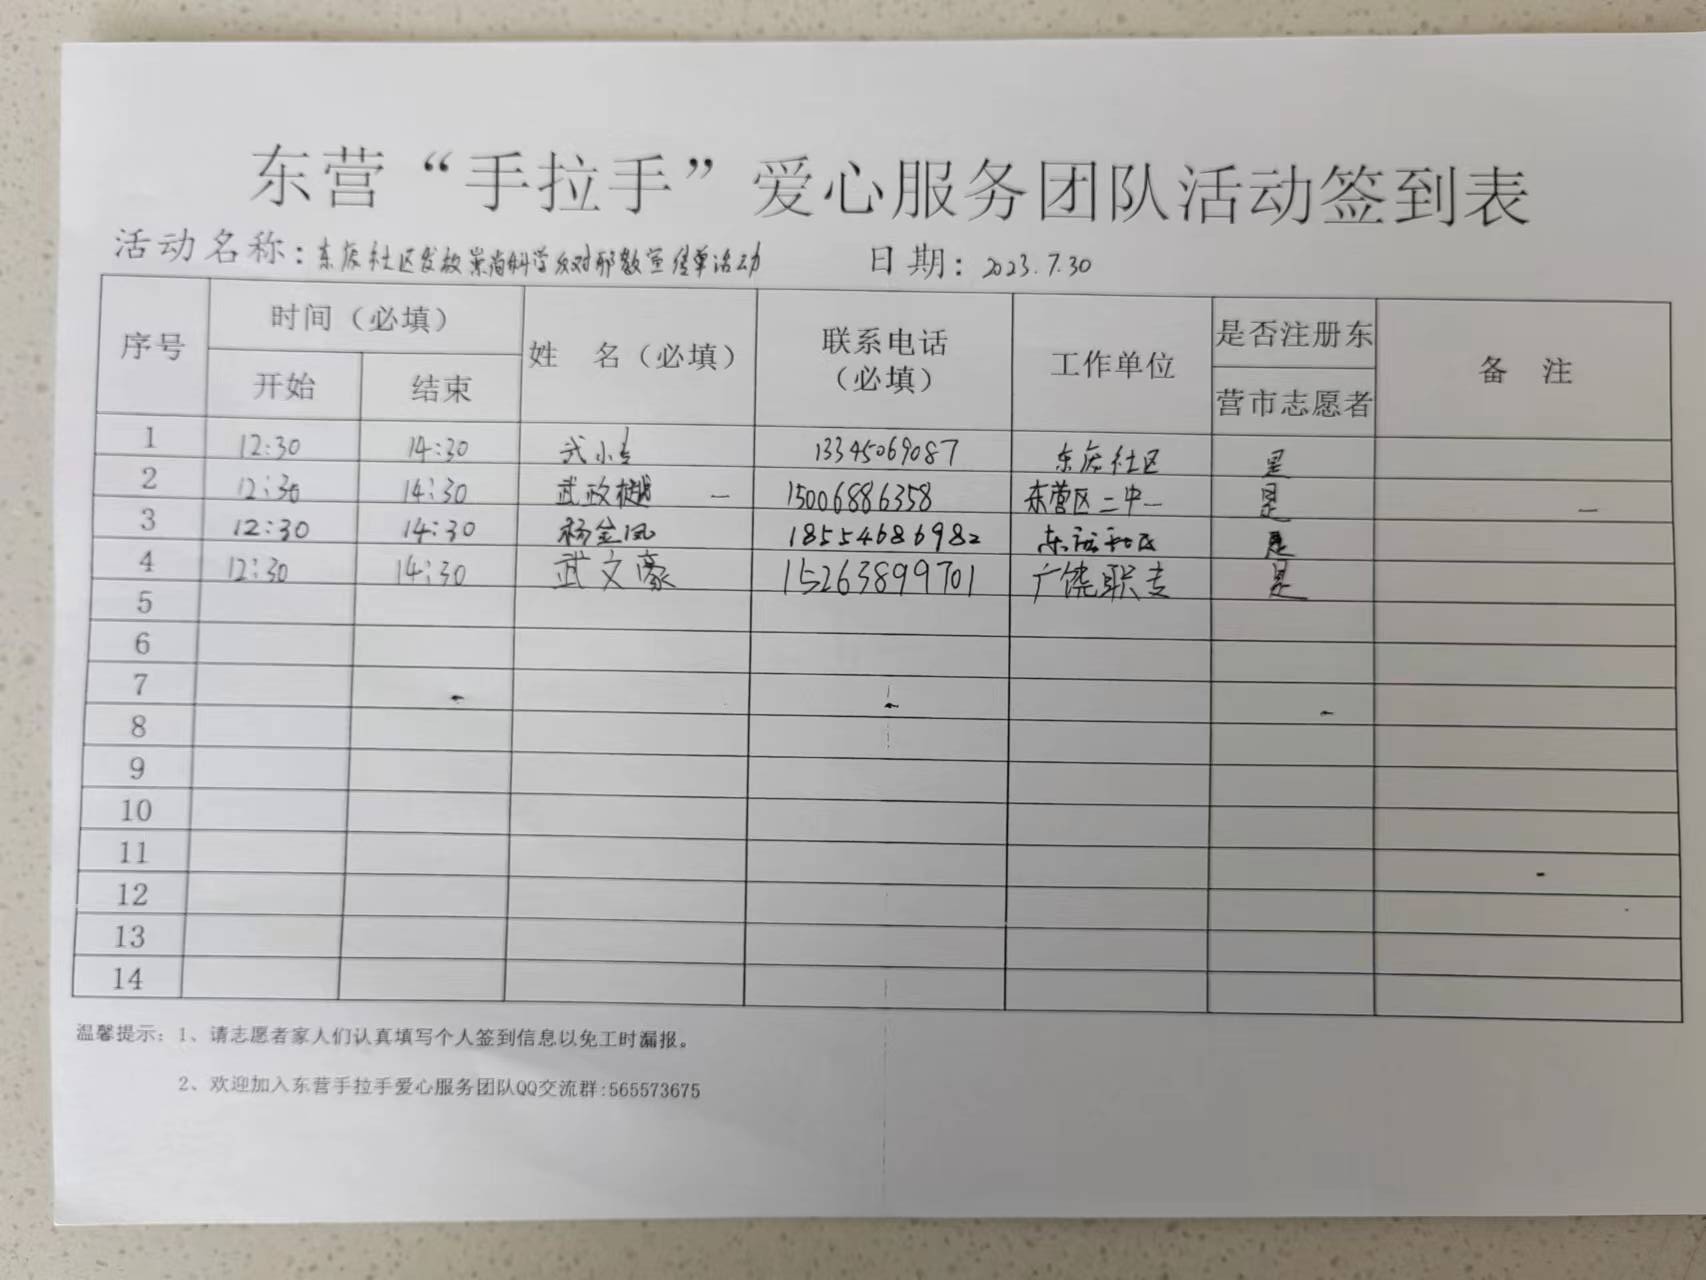 东营“手拉手”爱心服务团队活动签到表
活动名称：东辰社区发放崇尚科学反对邪教宣传单活动 日期：2023.7.30
序号 时间（必填） 姓 名（必填） 联系电话（必填） 工作单位 是否注册东营市志愿者 备 注
开始 结束
1 12:30 14:30 武小 13345069087 东辰社区 是
2 12:30 14:30 武政樾 15006886358 东营区二中 是
3 12:30 14:30 杨金凤 18554686982 东辰社区 是
4 12:30 14:30 武文豪 15263899701 广饶职专 是
5
6
7
8
9
10
11
12
13
14
温馨提示：1、请志愿者家人们认真填写个人签到信息以免工时漏报。
2、欢迎加入东营手拉手爱心服务团队QQ交流群:565573675